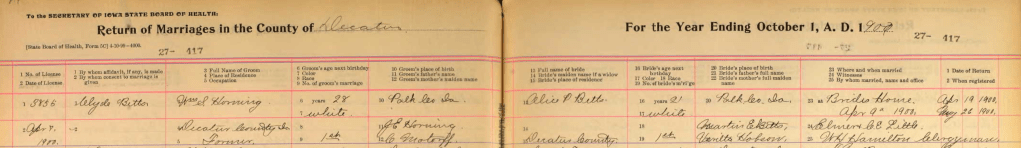 To the SECRETARY OF IOWA STATE BOARD OF HEALTH:
Return of Marriages in the County of Decatur
For the Year Ending October 1, A. D. 1908
[State Board of Health, Form 5C]
27- 417
27- 417
1 No. of License
2 Date of License
1 By whom affidavit, if any, is made
2 By whom consent to marriage is given
3 Full Name of Groom
4 Place of Residence
5 Occupation
6 Groom's age next birthday
7 Color
8 Race
9 No. of groom's marriage
10 Groom's place of birth
11 Groom's father's name
12 Groom's mother's maiden name
13 Full name of bride
14 Bride's maiden name if a widow
15 Bride's place of residence
16 Bride's age next birthday
17 Color 18 Race
19 No. of bride's marriage
20 Bride's place of birth
21 Bride's father's full name
22 Bride's mother's full maiden name
23 Where and when married
24 Witnesses
25 By whom married, name and office
1 Date of Return
2 When registered
1 5856 Clyde Betts Wm S Horning 6 years 28 10 Polk Co. Ia. Alice P Betts 16 years 21 20 Polk Co. Ia. 23 at Bride's Home, Apr 19 1908.
7 White 17 White Apr 9th 1908. May 26 1908.
2 Apr 8, 1908. Decatur County Ia J E Horning Quartus E Betts, Elmer & E Little.
5 Farmer 9 1st Decatur County, 19 1st Vanetta Hobson, W H Hamilton Clergyman.